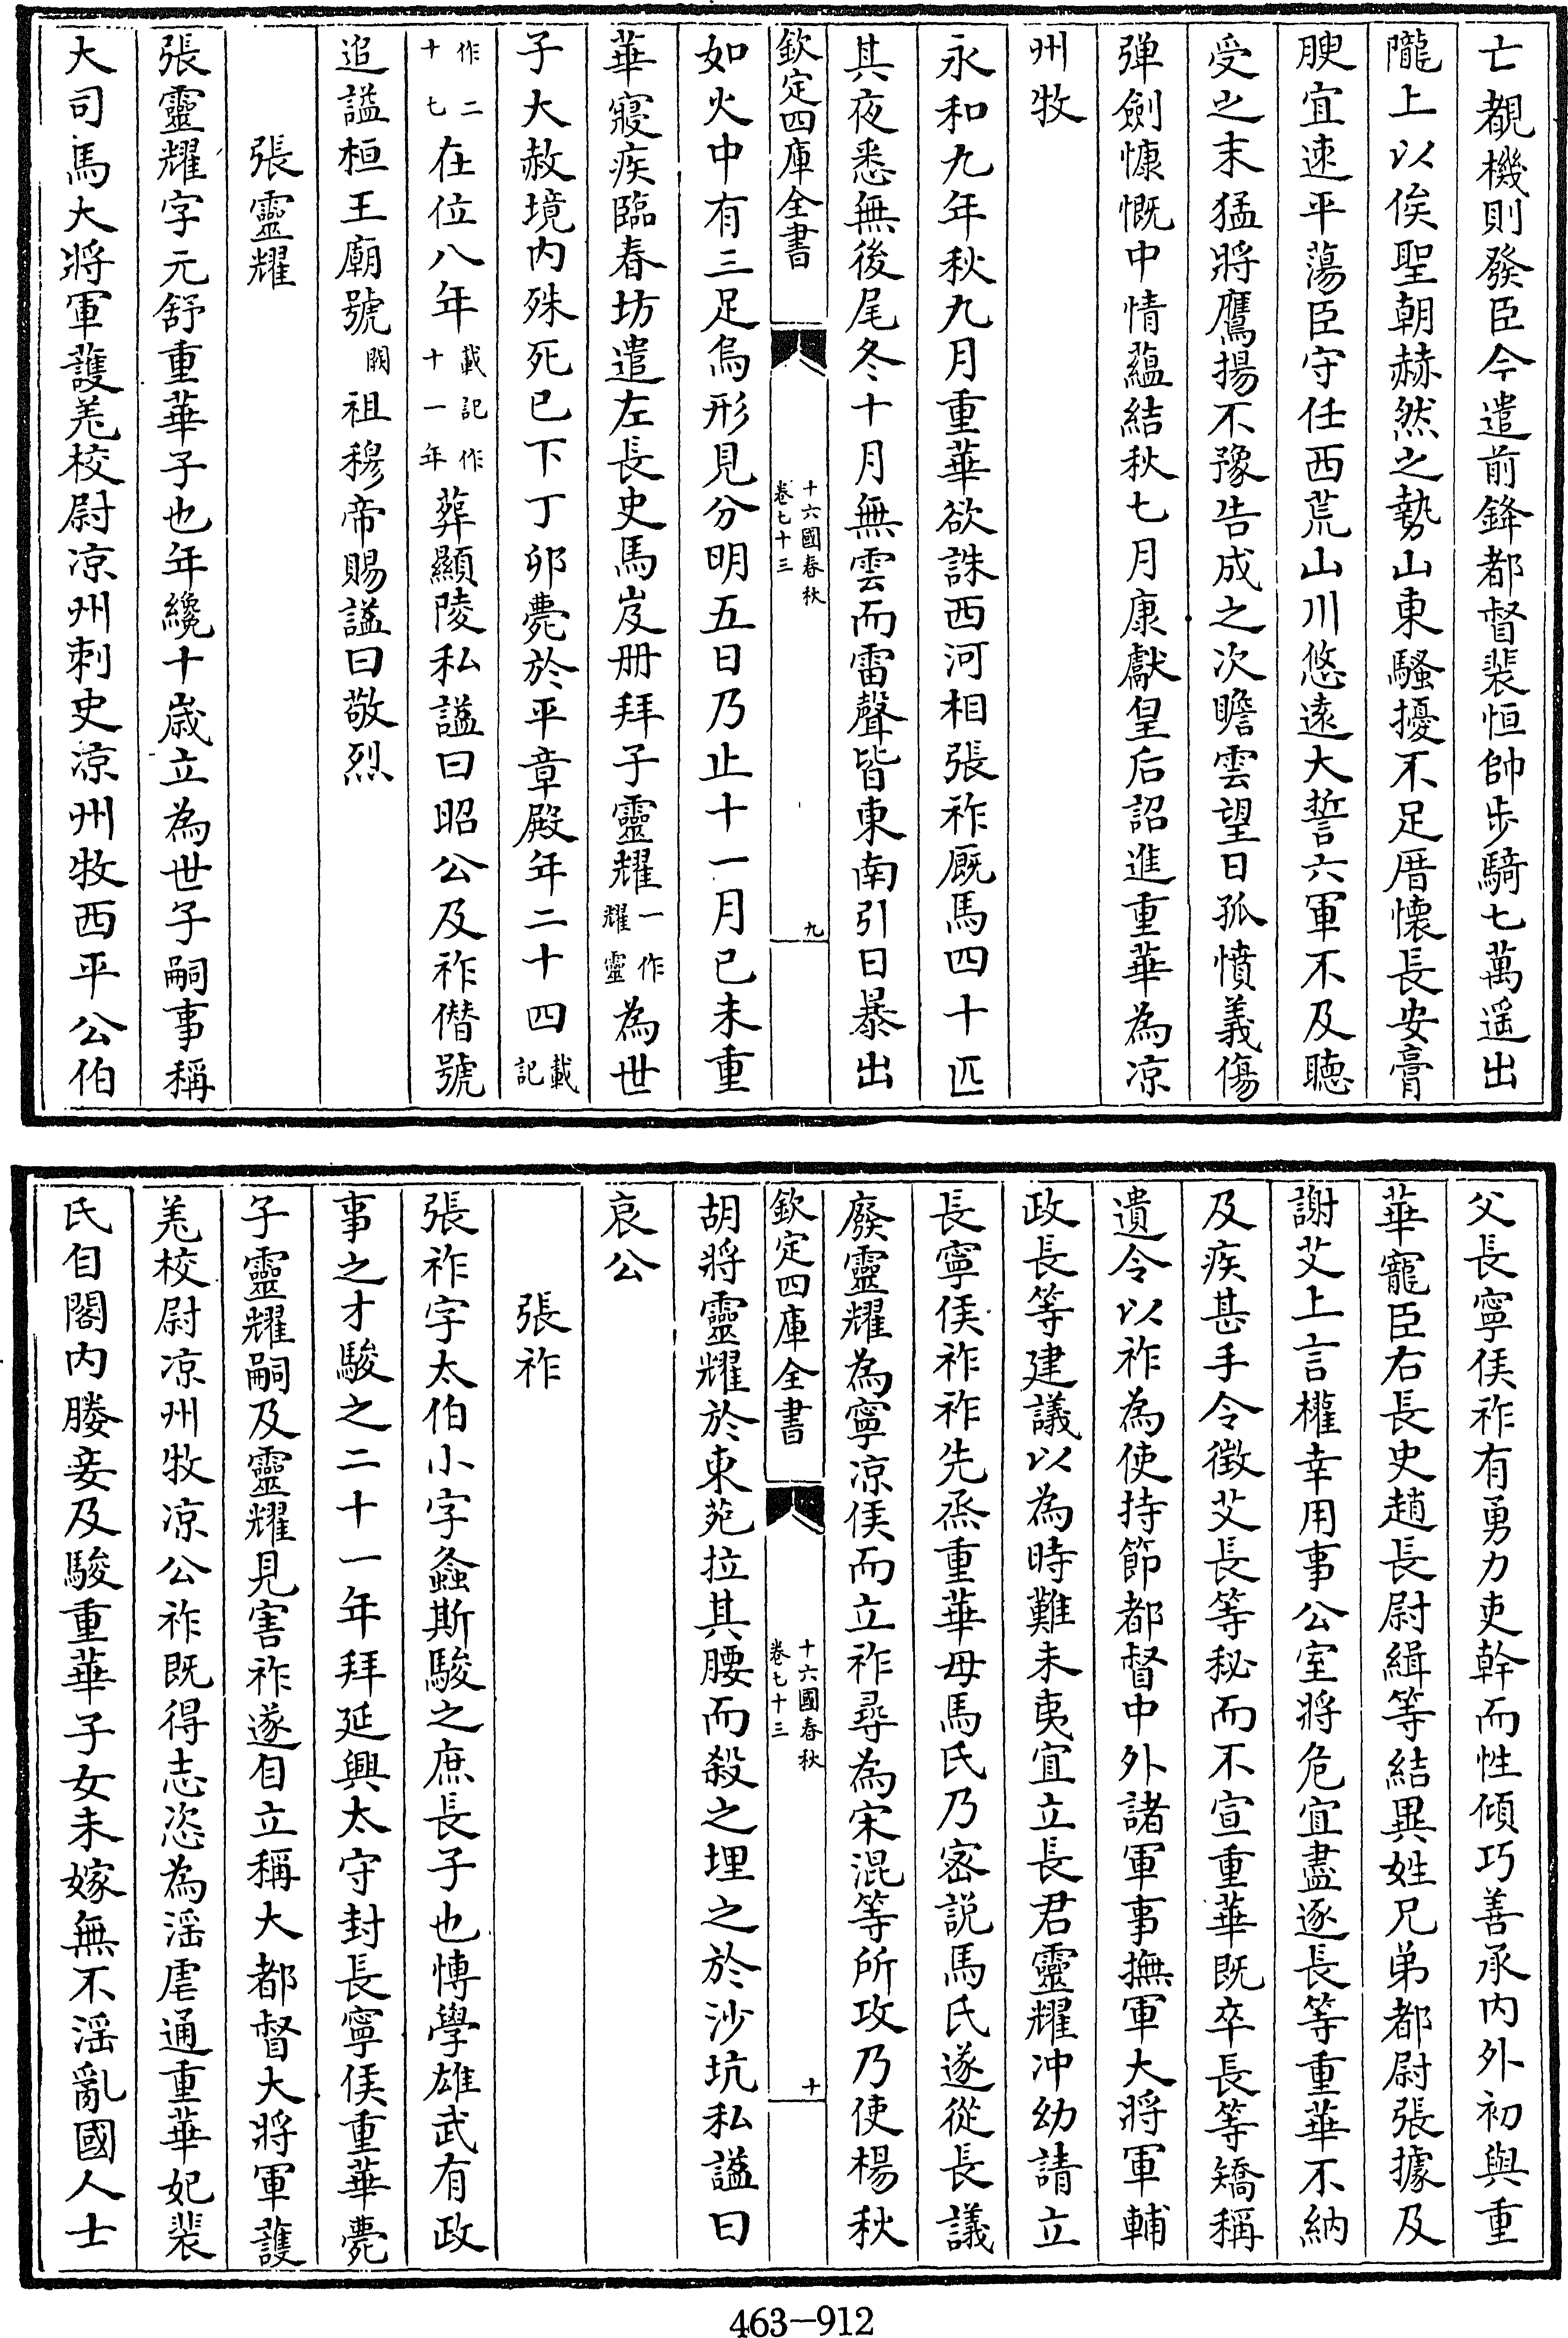 亡覩機則發臣今遣前鋒都督裴恒帥步騎七萬遥出
隴上以俟聖朝赫然之勢山東騷擾不足厝懷長安膏
腴宜速平蕩臣守任西荒山川悠遠大誓六軍不及聽
受之末猛將鷹揚不豫告成之次瞻雲望日孤憤義傷
彈劍慷慨中情蘊結秋七月康獻皇后詔進重華為涼
州牧
永和九年秋九月重華欲誅西河相張祚厩馬四十匹
其夜悉無後尾冬十月無雲而雷聲皆東南引日暴出
欽定四庫全書
十六國春秋
卷七十三
九
如火中有三足烏形見分明五日乃止十一月已未重
華寢疾臨春坊遣左長史馬岌册拜子靈耀一作靈耀為世
子大赦境内殊死已下丁卯薨於平章殿年二十四載記
作二十七在位八年載記作十一年葬顯陵私謚曰昭公及祚僭號
追謚桓王廟號闕祖穆帝賜謚曰敬烈
張靈耀
張靈耀字元舒重華子也年纔十歲立為世子嗣事稱
大司馬大將軍護羌校尉涼州刺史涼州牧西平公伯
父長寧侯祚有勇力吏幹而性傾巧善承内外初與重
華寵臣右長史趙長尉緝等結異姓兄弟都尉張據及
謝艾上言權幸用事公室將危宜盡逐長等重華不納
及疾甚手令徵艾長等秘而不宣重華既卒長等矯稱
遺令以祚為使持節都督中外諸軍事撫軍大將軍輔
政長等建議以為時難未夷宜立長君靈耀冲幼請立
長寧侯祚祚先烝重華母馬氏乃密説馬氏遂從長議
廢靈耀為寧涼侯而立祚尋為宋混等所攻乃使楊秋
欽定四庫全書
十六國春秋
卷七十三
十
胡將靈耀於東苑拉其腰而殺之埋之於沙坑私謚曰
哀公
張祚
張祚字太伯小字螽斯駿之庶長子也博學雄武有政
事之才駿之二十一年拜延興太守封長寧侯重華薨
子靈耀嗣及靈耀見害祚遂自立稱大都督大將軍護
羌校尉涼州牧涼公祚既得志恣為淫虐通重華妃裴
氏自閣内媵妾及駿重華子女未嫁無不淫亂國人士
463-912